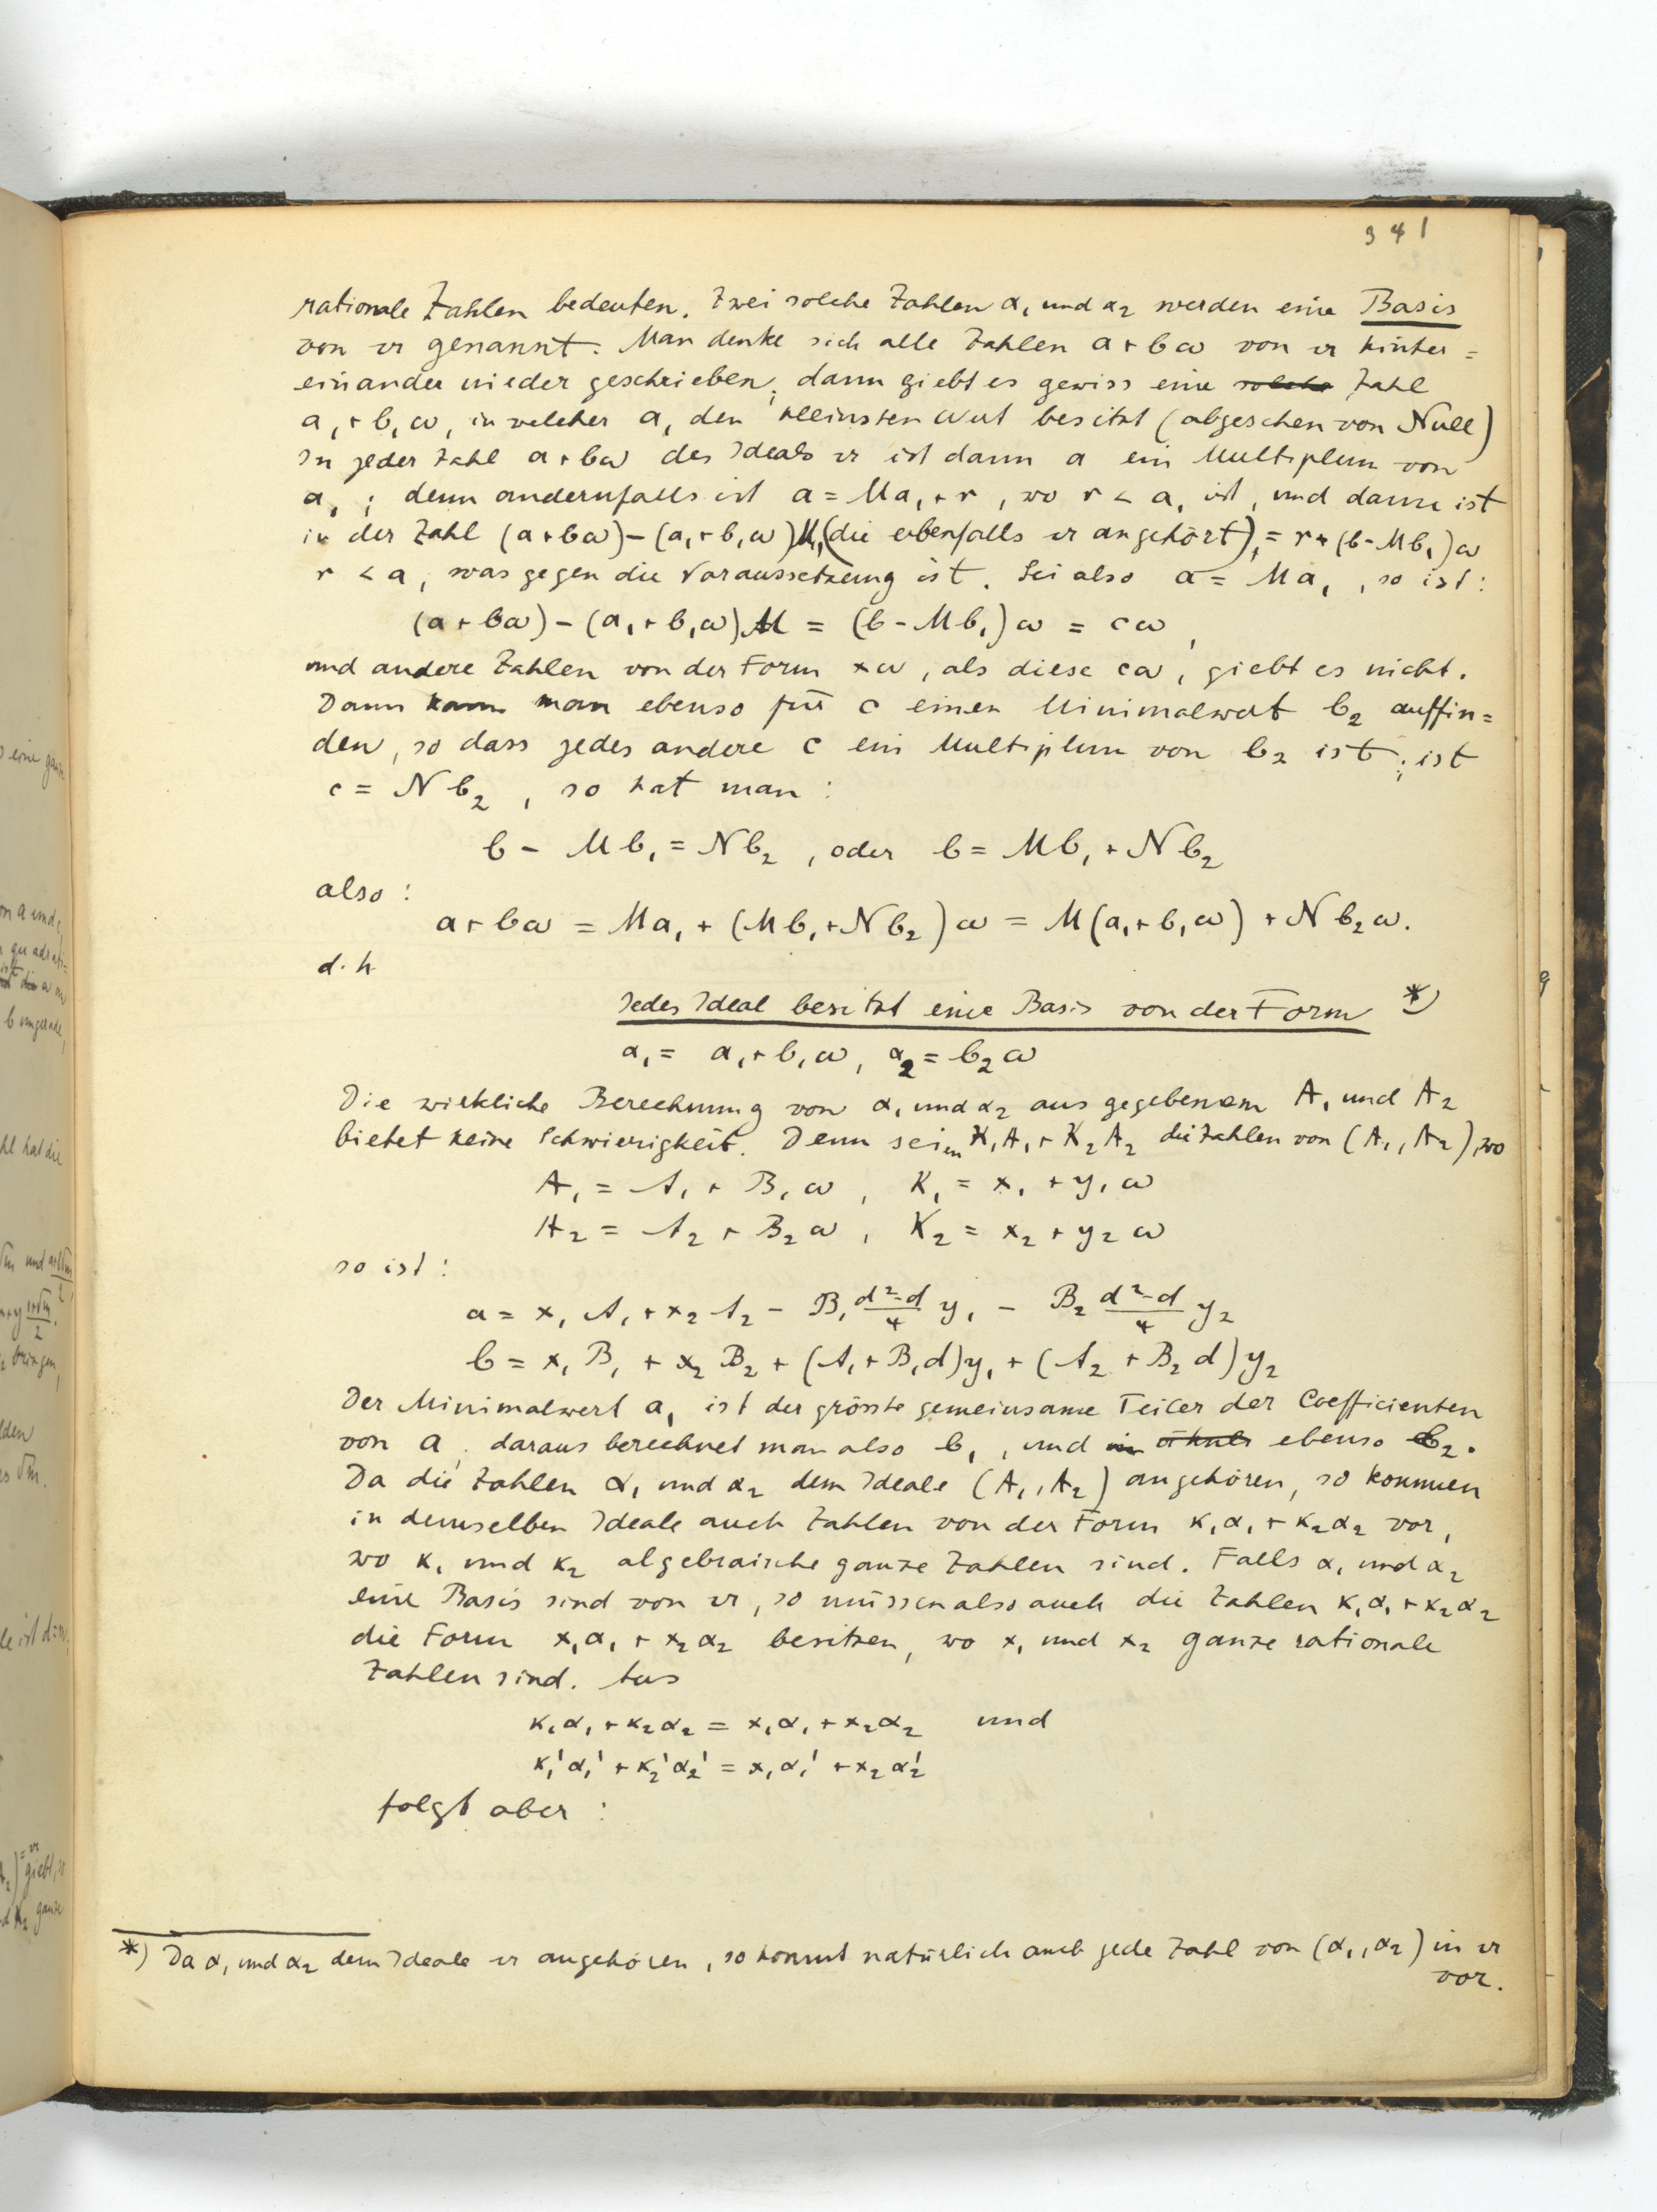 341
rationale Zahlen bedeuten. Zwei solche Zahlen α₁ und α₂ werden eine Basis
von 𝔞 genannt. Man denke sich alle Zahlen a + bω von 𝔞 hinter=
einander niedergeschrieben; dann giebt es gewiss eine solche Zahl
a₁ + b₁ω, in welcher a₁ den kleinsten Wert besitzt (abgesehen von Null)
In jeder Zahl a + bω des Ideals 𝔞 ist dann a ein Multiplum von
a₁; denn andernfalls ist a = Ma₁ + r, wo r < a₁ ist, und dann ist
in der Zahl (a + bω) – (a₁ + b₁ω)M, (die ebenfalls 𝔞 angehört), = r + (b – Mb₁)ω
r < a, was gegen die Voraussetzung ist. Sei also a = Ma₁, so ist:
(a + bω) – (a₁ + b₁ω)M = (b – Mb₁)ω = cω,
und andere Zahlen von der Form xω, als diese cω, giebt es nicht.
Dann kann man ebenso für c einen Minimalwert b₂ auffin=
den, so dass jedes andere c ein Multiplum von b₂ ist; ist
c = Nb₂, so hat man:
b – Mb₁ = Nb₂, oder b = Mb₁ + Nb₂
also:
a + bω = Ma₁ + (Mb₁ + Nb₂)ω = M(a₁ + b₁ω) + Nb₂ω.
d. h
Jedes Ideal besitzt eine Basis von der Form *)
α₁ = a₁ + b₁ω, α₂ = b₂ω
Die wirkliche Berechnung von α₁ und α₂ aus gegebenem A₁ und A₂
bietet keine Schwierigkeit. Denn seien K₁A₁ + K₂A₂ die Zahlen von (A₁, A₂), wo
A₁ = A₁ + B₁ω, K₁ = x₁ + y₁ω
A₂ = A₂ + B₂ω, K₂ = x₂ + y₂ω
so ist:
a = x₁A₁ + x₂A₂ – B₁ (d²–d)/4 y₁ – B₂ (d²–d)/4 y₂
b = x₁B₁ + x₂B₂ + (A₁ + B₁d)y₁ + (A₂ + B₂d)y₂
Der Minimalwert a₁ ist der grösste gemeinsame Teiler der Coefficienten
von a; daraus berechnet man also b₁, und ebenso b₂.
Da die Zahlen α₁ und α₂ dem Ideale (A₁, A₂) angehören, so kommen
in demselben Ideale auch Zahlen von der Form κ₁α₁ + κ₂α₂ vor,
wo κ₁ und κ₂ algebraische ganze Zahlen sind. Falls α₁ und α₂
eine Basis sind von 𝔞, so müssen also auch die Zahlen κ₁α₁ + κ₂α₂
die Form x₁α₁ + x₂α₂ besitzen, wo x₁ und x₂ ganze rationale
Zahlen sind. Aus
κ₁α₁ + κ₂α₂ = x₁α₁ + x₂α₂ und
κ₁'α₁' + κ₂'α₂' = x₁α₁' + x₂α₂'
folgt aber:
*) Da α₁ und α₂ dem Ideale 𝔞 angehören, so kommt natürlich auch jede Zahl von (α₁, α₂) in 𝔞
vor.